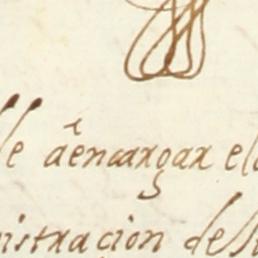 le aencargar el
nistraçion de s